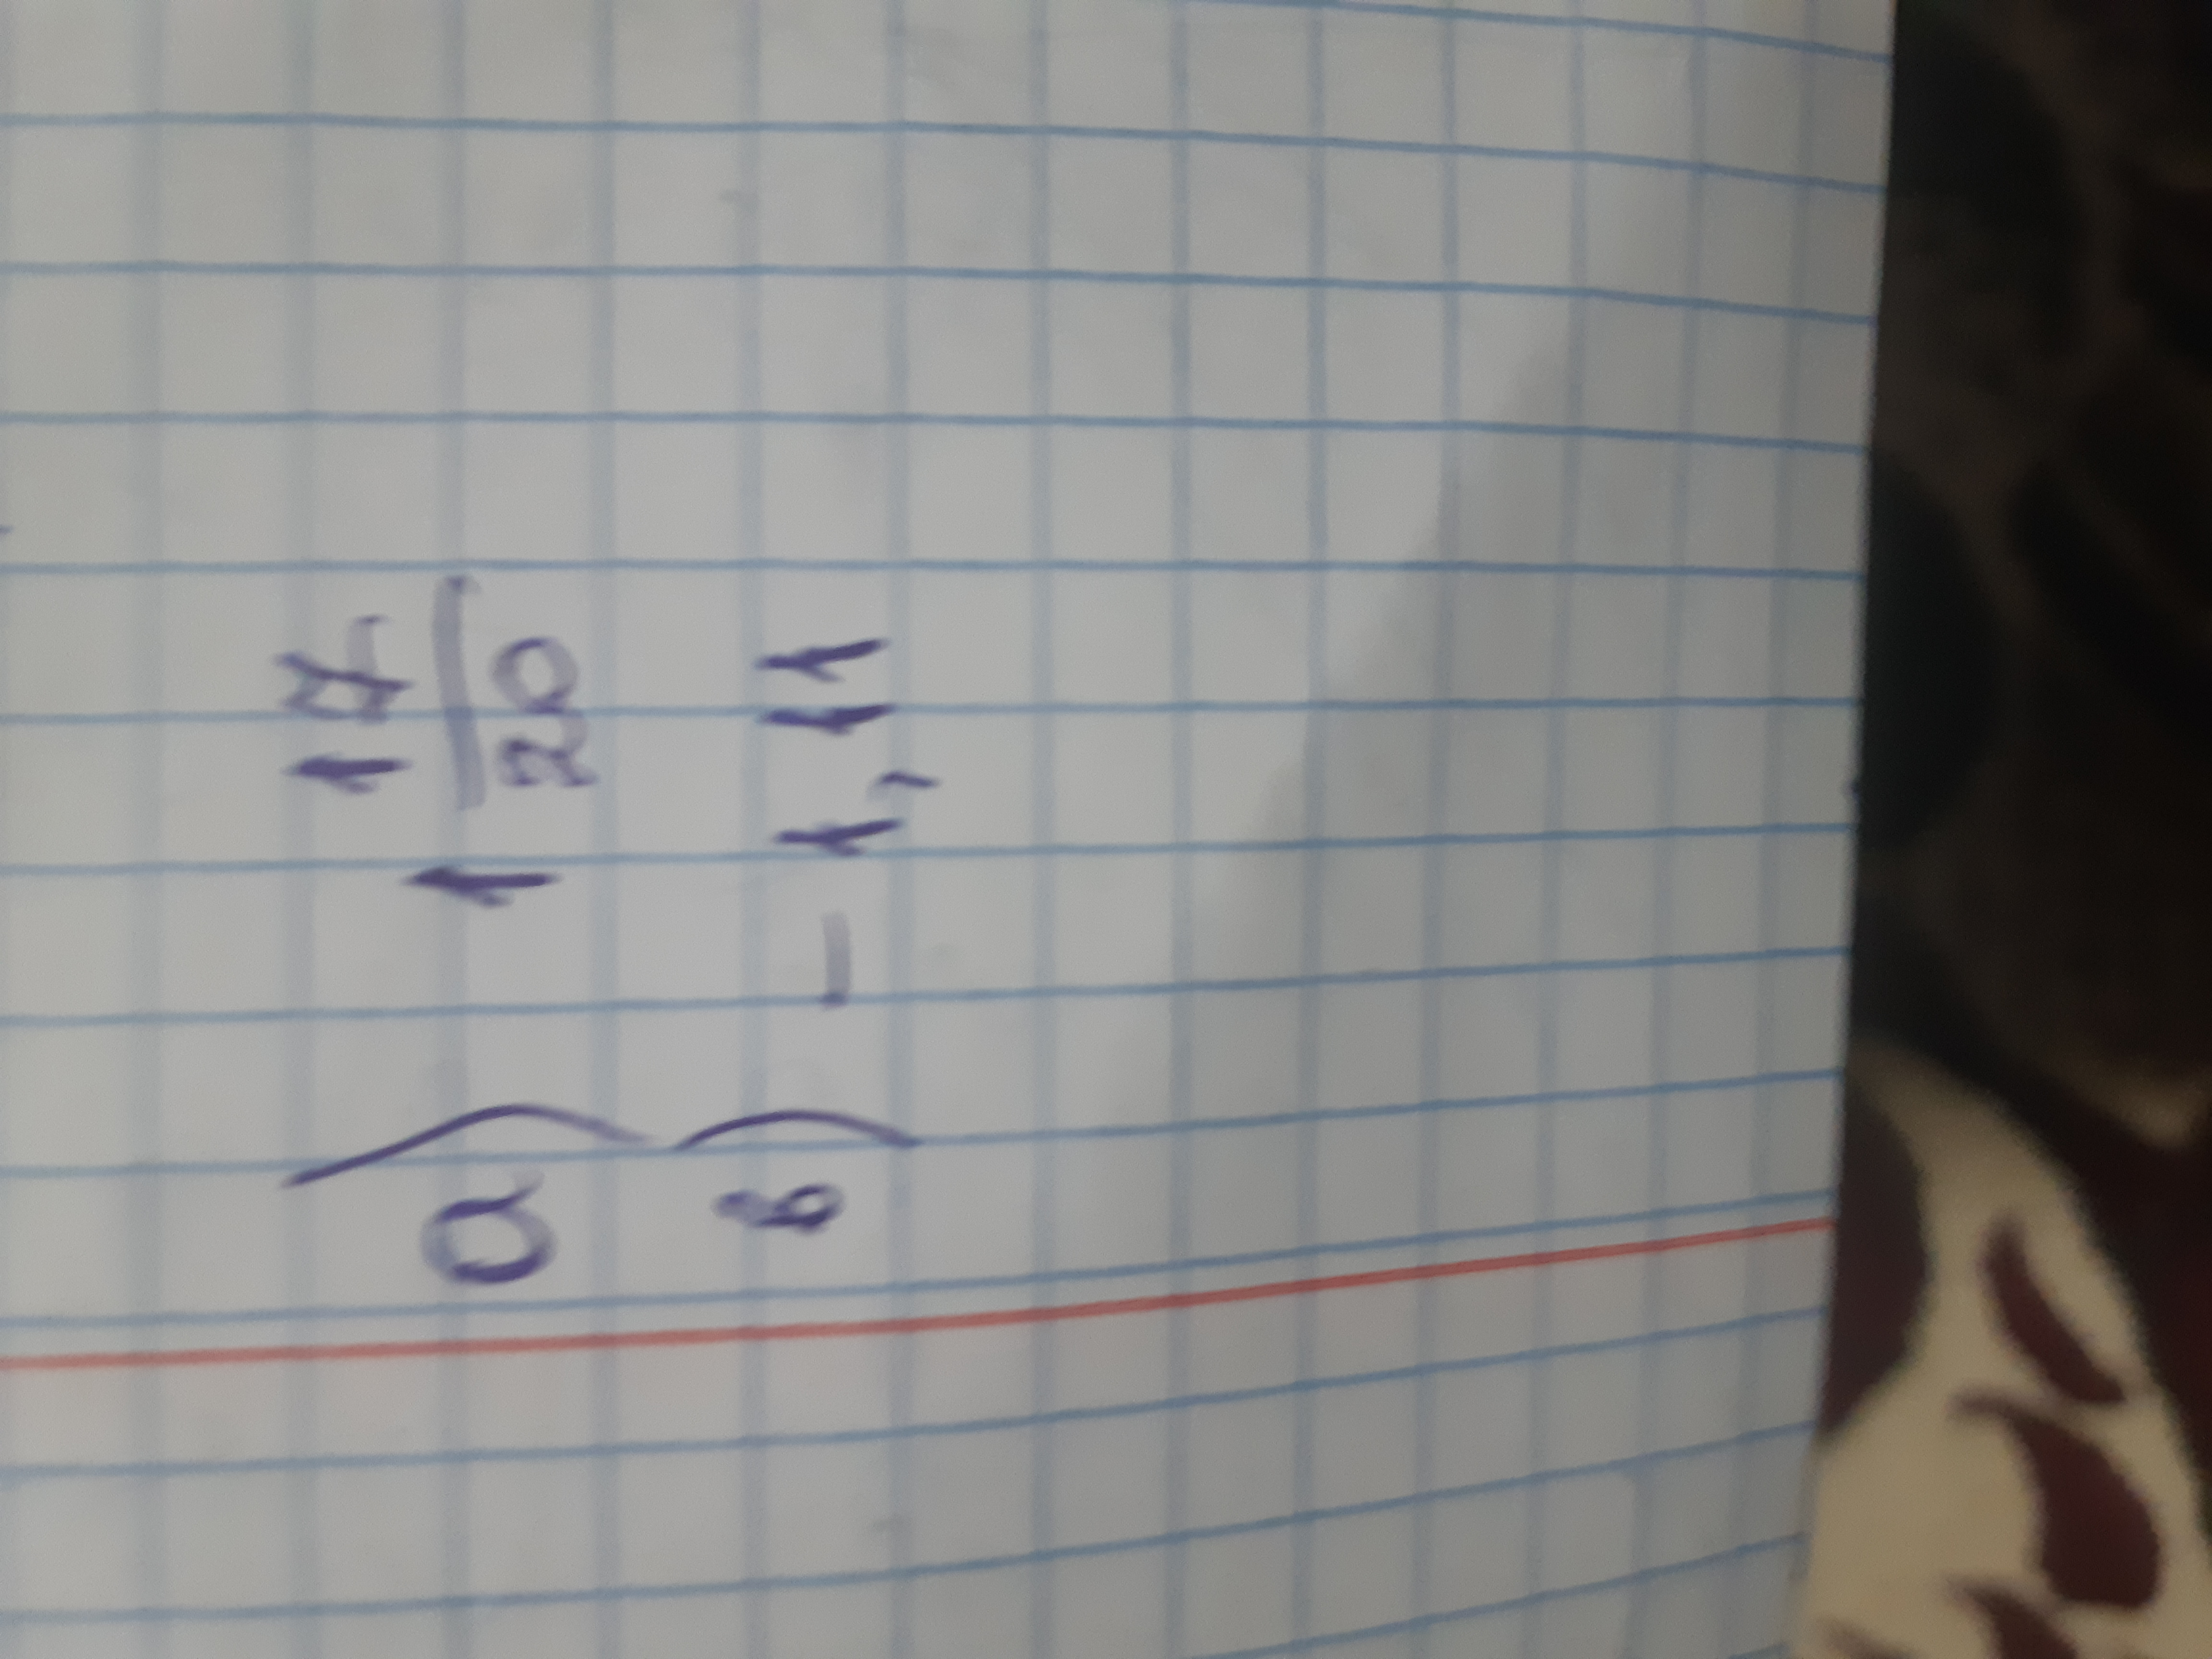 а) 1 17/20
в) - 1,11